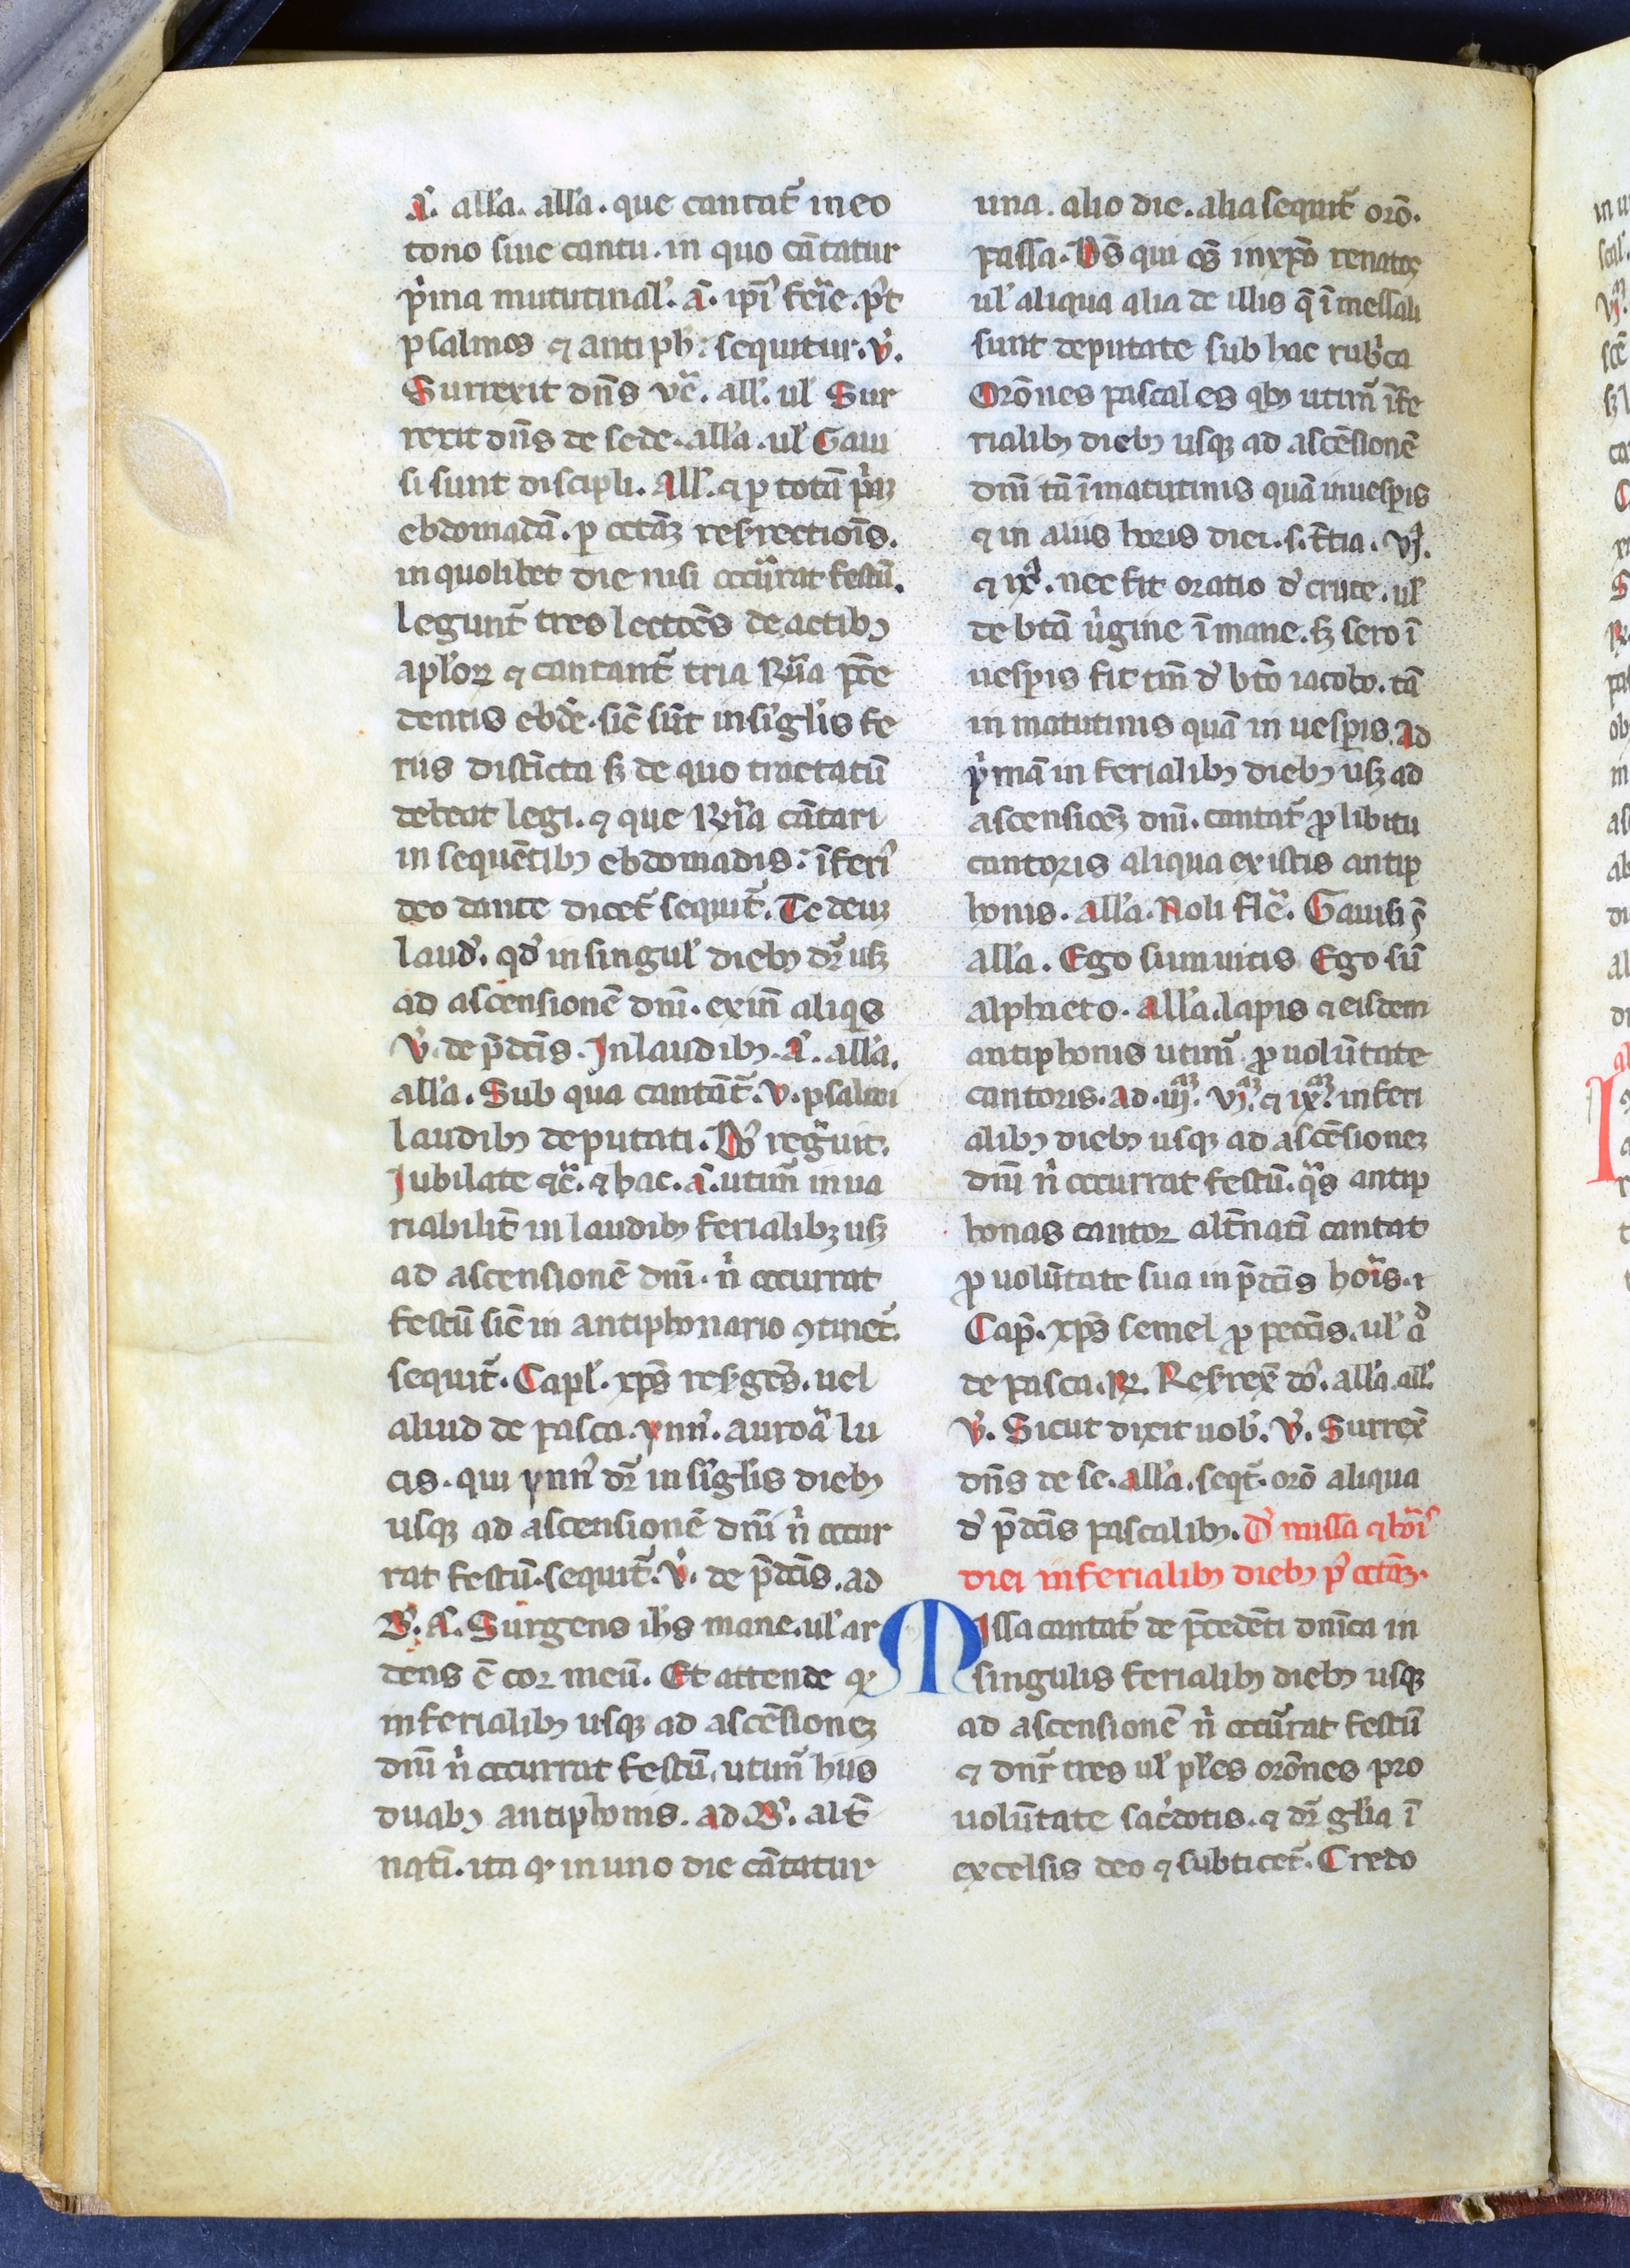 a᷑. all'a. all'a. que cantat᷑ in eo
tono siue cantu. in quo cātatur
p'ma mututinal'. ā. ip̄i᷑ feīe. p't
psalmos ⁊ antiph'. sequitur. v᷑.
Surrexit dn̄s ve᷑. all'. ul' Sur
rexit dn̄s de sede. all'a. ul' Gaui
si sunt discipli. All'. ⁊ p totā p'mā
ebdomadā. p octāꝫ resr̄rectiōis.
in quolibet die nisi occūrat festū.
Legunt᷑ tres lectōes de actibꝫ
apl'oꝝ ⁊ cantant᷑ tria Rn̄ia p̄ce
dentis ebd'e. sic̄ sūt in si'gl'is fe
riis disti'cta sꝫ de quo tractatū
debeat legi. ⁊ que Rn̄ia cātari
in sequētibꝫ ebdomadis. īferi᷑
deo dante dicet᷑ sequit᷑. Te deuꝫ
laud'. qd' in singul' diebꝫ dr̄ usꝫ
ad ascensionē dn̄i. exin̄ aliqs
v᷑. de p̄dc̄is. In laudibꝫ. a᷑. all'a.
all'a. Sub qua cantāt᷑. v. psalmi
laudibꝫ deputati. Dn᷑s regn̄uit.
Jubilate ⁊c̄. ⁊ hac. ā. utim᷑ in ua
riabilit᷑ in laudibꝫ ferialibꝫ usꝫ
ad ascensionē dn̄i. n' occurrat
festū sic̄ in antiphonario ꝯtinet᷑.
sequit᷑. Capl'. xp̄s resr̄gēs. uel
aliud de pasca. ynn᷑. auroā lu
cis. qui ynn᷑ dr̄ in si'gl'is diebꝫ
usqꝫ ad ascensionē dn̄i n' occur
rat festū. sequit᷑. v᷑. de p̄dc̄is. ad
B᷑. A᷑. Surgens ih̄s mane. ul' ar
dens ē cor meū. Et attende qꝛ
in ferialibꝫ usqꝫ ad ascēsioneꝫ
dn̄i n' occurrat festū, utim᷑ hiis
duabꝫ antiphonis. ad B᷑. alt᷑
natī. ita qꝛ in uno die cātatur
una. alio die. alia sequit᷑ orō.
passa. Ds̄ qui os̄ in xp̄o renatos
ul' aliqua alia de illis q̄ ī messali
sunt deputate sub hac rub'ca
Orōnes pascales qibꝫ utim᷑ ī fe
rialibꝫ diebꝫ usqꝫ ad ascēsionē
dn̄i tā ī matutinis quā in uesp̄is
⁊ in aliis horis diei. s. t᷑tia. vjᵃ.
⁊ ixᵃ. nec fit oratio d' cruce. ul'
de btā u'gine ī mane. sꝫ sero ī
uesp̄is fit tm̄ d' btō iacobo. tā
in matutinis quā in uesp̄is. Ad
p'mā in ferialibꝫ diebꝫ usꝫ ad
ascensioēꝫ dn̄i. cantat᷑ ꝓ libitu
cantoris aliqua ex istis antip
honis. all'a. Noli fle᷑. Gauisi s̄
all'a. Ego sum uitis Ego sū
alpha et o. all'a. lapis ⁊ eisdem
antiphonis utim᷑ ꝓ uolūtate
cantoris. Ad iijᵃᵐ. vjᵃᵐ. ⁊ ixᵃᵐ. in feri
alibꝫ diebꝫ usqꝫ ad ascēsioneꝫ
dn̄i n' occurrat festū. qᵃs antip
honas cantor alt᷑natī cantat
ꝓ uolūtate sua in p̄dc̄is hor̄is. ⁊
Cap᷑. xp̄s semel ꝓ pecc̄is. ul' aᵈ
de pasca. R᷑. Resr̄rex᷑ do᷑. all'a. all'.
v᷑. Sicut dixit uob᷑. v᷑. Surrex᷑
dn̄s de se. all'a. seqt᷑. orō aliqua
d' p̄dc̄is pascalibꝫ. D' missa ⁊ hōi᷑
diei in ferialibꝫ diebꝫ p' octāꝫ.
Missa cantat᷑ de p̄cedēti dn̄ica in
singulis ferialibꝫ diebꝫ usqꝫ
ad ascensionē n' occūrat festū
⁊ dn̄r tres ul' pl'es orōnes pro
uolūtate sac'dotis. ⁊ dr̄ gl'ia ī
excelsis deo ⁊ subticet᷑. Credo